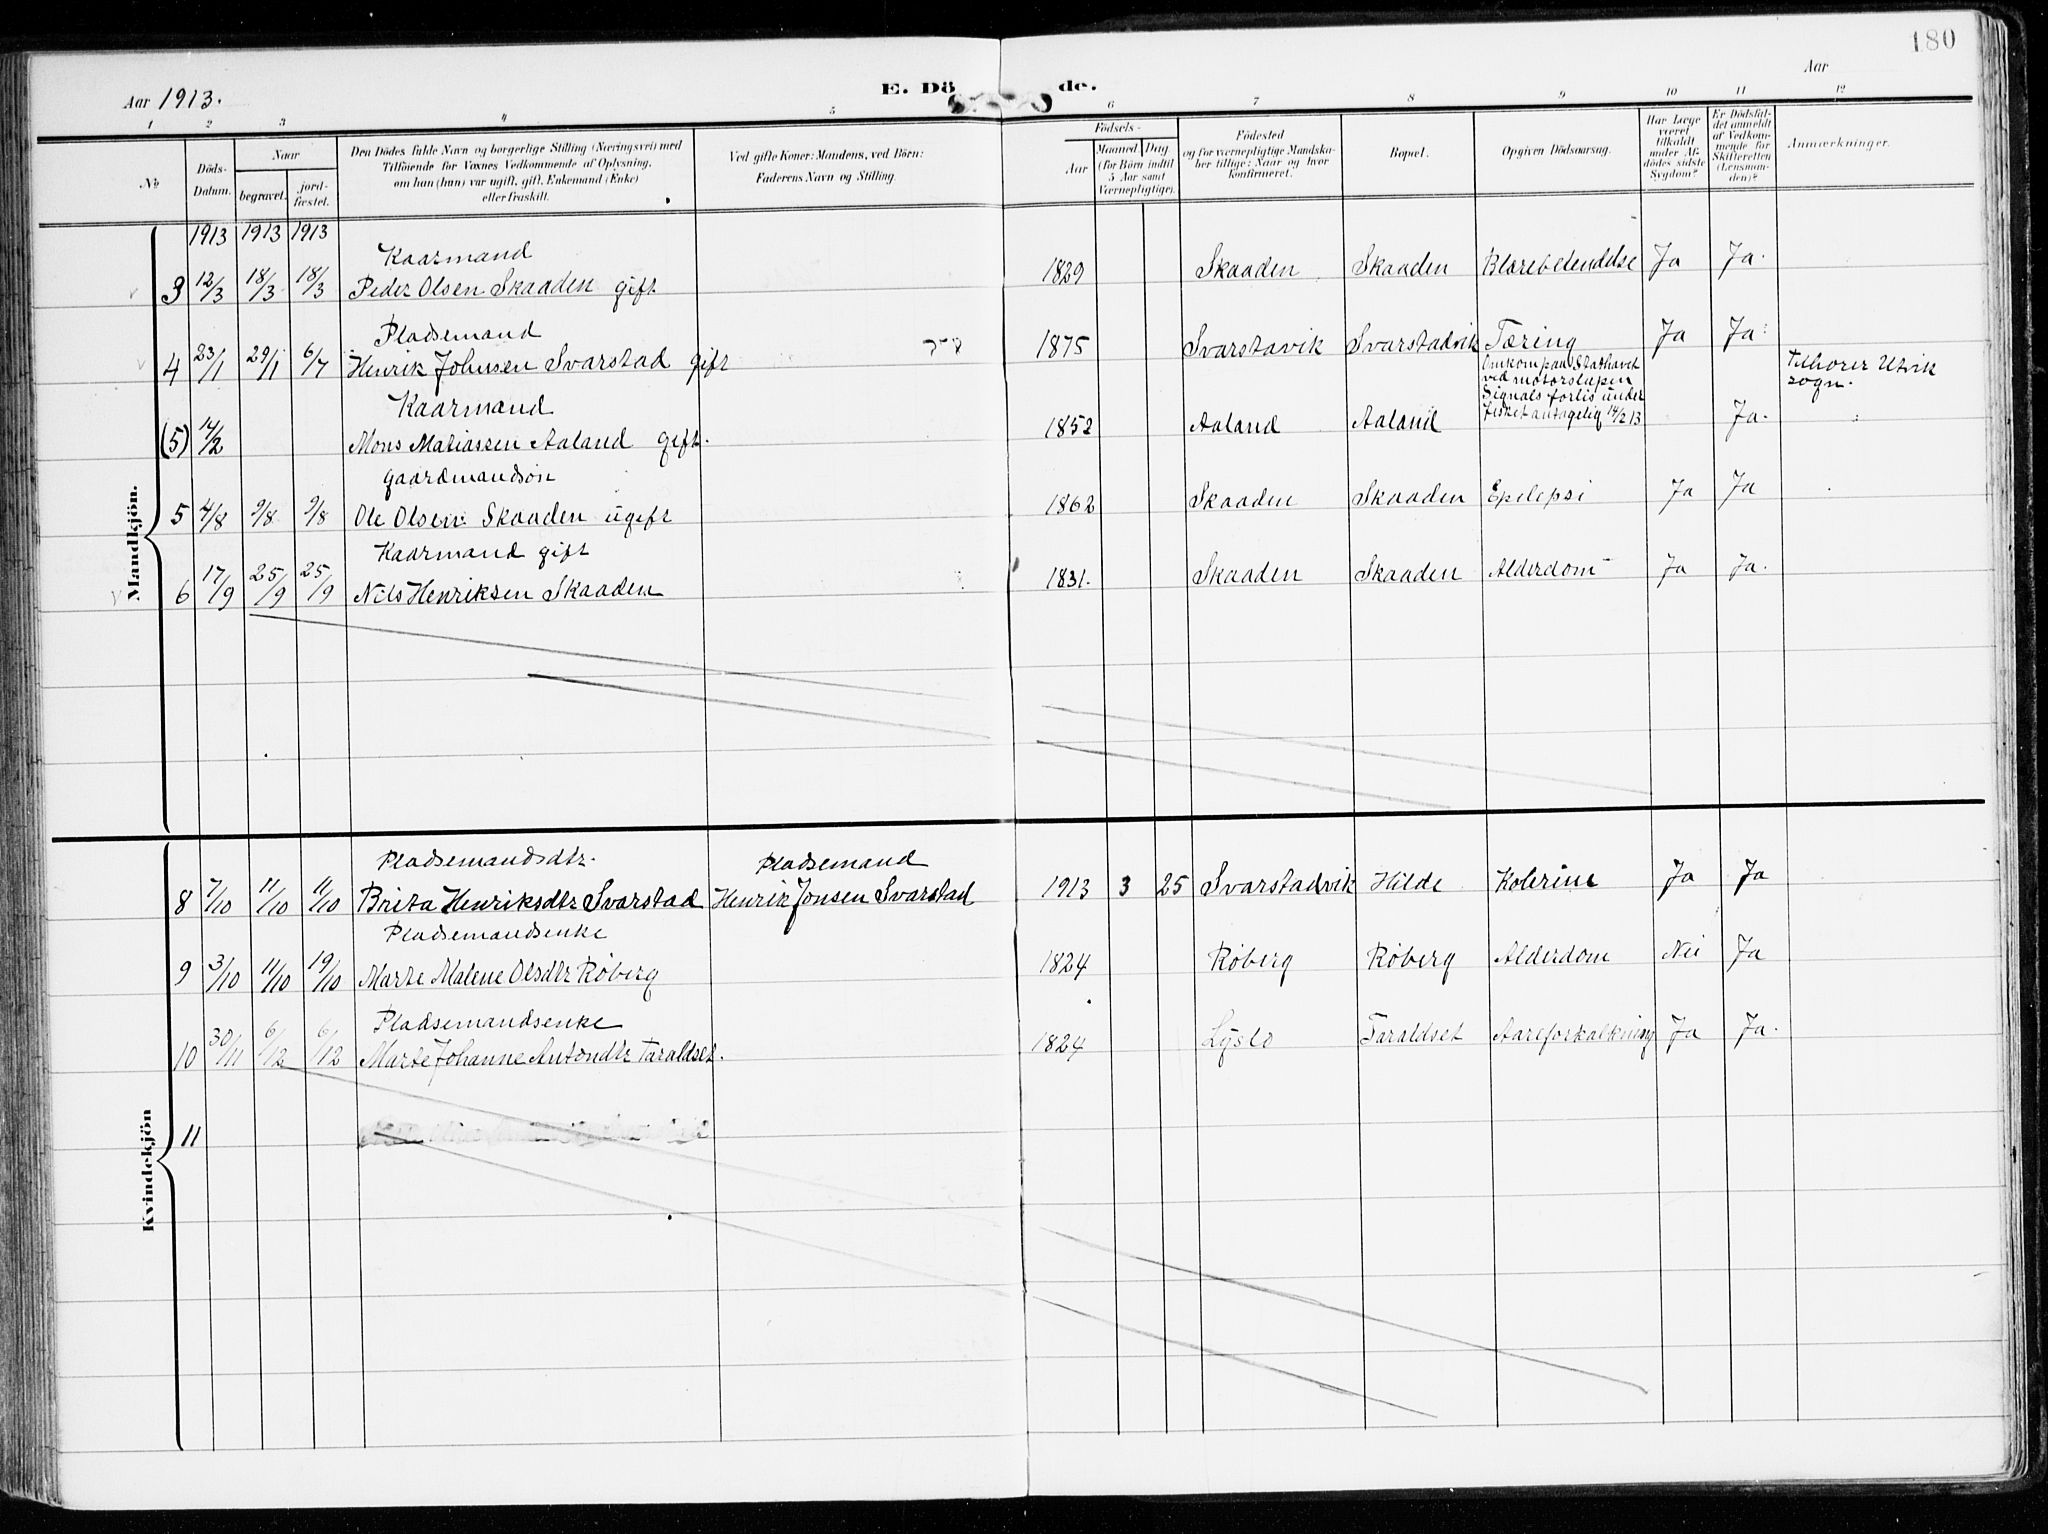 180
Aar 1913.
E. Dö de.
Aar
1 2 3 4 5 6 7 8 9 10 11 12
No
Döds-
Datum.
Naar
begravet.
jord-
fæstet.
Den Dödes fulde Navn og borgerlige Stilling (Næringsvei) med
Tilföiende for Voxnes Vedkommende af Oplysning,
om han (hun) var ugift, gift, Enkemand (Enke)
eller fraskilt.
Ved gifte Koner: Mandens, ved Börn:
Faderens Navn og Stilling
Födsels-
Aar
Maaned Dag
(for Börn indtil
5 Aar samt
Værnepligtige).
Födested
og for værnepligtige Mandska-
ber tillige: Naar og hvor
konfirmeret.
Bopæl.
Opgiven Dödsaarsag.
Har Læge
været
tilkaldt
under Af-
dödes sidste
Sygdom?
Er Dödsfal-
det anmeldt
af Vedkom-
mende for
Skifteretten
(Lensman-
den)?
Anmærkninger.
Mandkjön.
1913 1913 1913
Kaarmand
3 12/3 18/3 18/3 Peder Olsen Skaaden gift 1829 Skaaden Skaaden Ja Ja.
Pladsemand
4 23/1 29/1 6/7 Henrik Johnsen Svarstad gift 1875 Svarstavik Svarstadvik Tæring Ja Ja.
Omkom paa Stathavet
ved motorslupen
Signals forlis under
fisket antagelig 14/2 13
Tilhører Utvik
sogn.
Kaarmand
(5) 14/2 Mons Matiassen Aaland gift. 1852 Aaland Aaland Ja.
Gaardmandsøn
5 4/8 9/8 9/8 Ole Olsen Skaaden ugift 1862 Skaaden Skaaden Epilepsi Ja Ja
Kaarmand gift
6 17/9 25/9 25/9 Nils Henriksen Skaaden 1831. Skaaden Skaaden Alderdom Ja Ja.
Kvindekjön
Pladsemandsdtr. Pladsemand
8 7/10 11/10 11/10 Brita Henriksdtr Svarstad Henrik Jonsen Svarstad 1913 3 25 Svarstadvik Hilde Kolerine Ja Ja
Pladsemandsenke
9 3/10 11/10 19/10 Marte Malene Olsdtr Røberg 1824 Røberg Røberg Alderdom Nei Ja
Pladsemandsenke
10 30/11 6/12 6/12 Marte Johanne Antondtr Taraldset. 1824 Lyslo Taraldset Aareforkalkning Ja Ja.
11